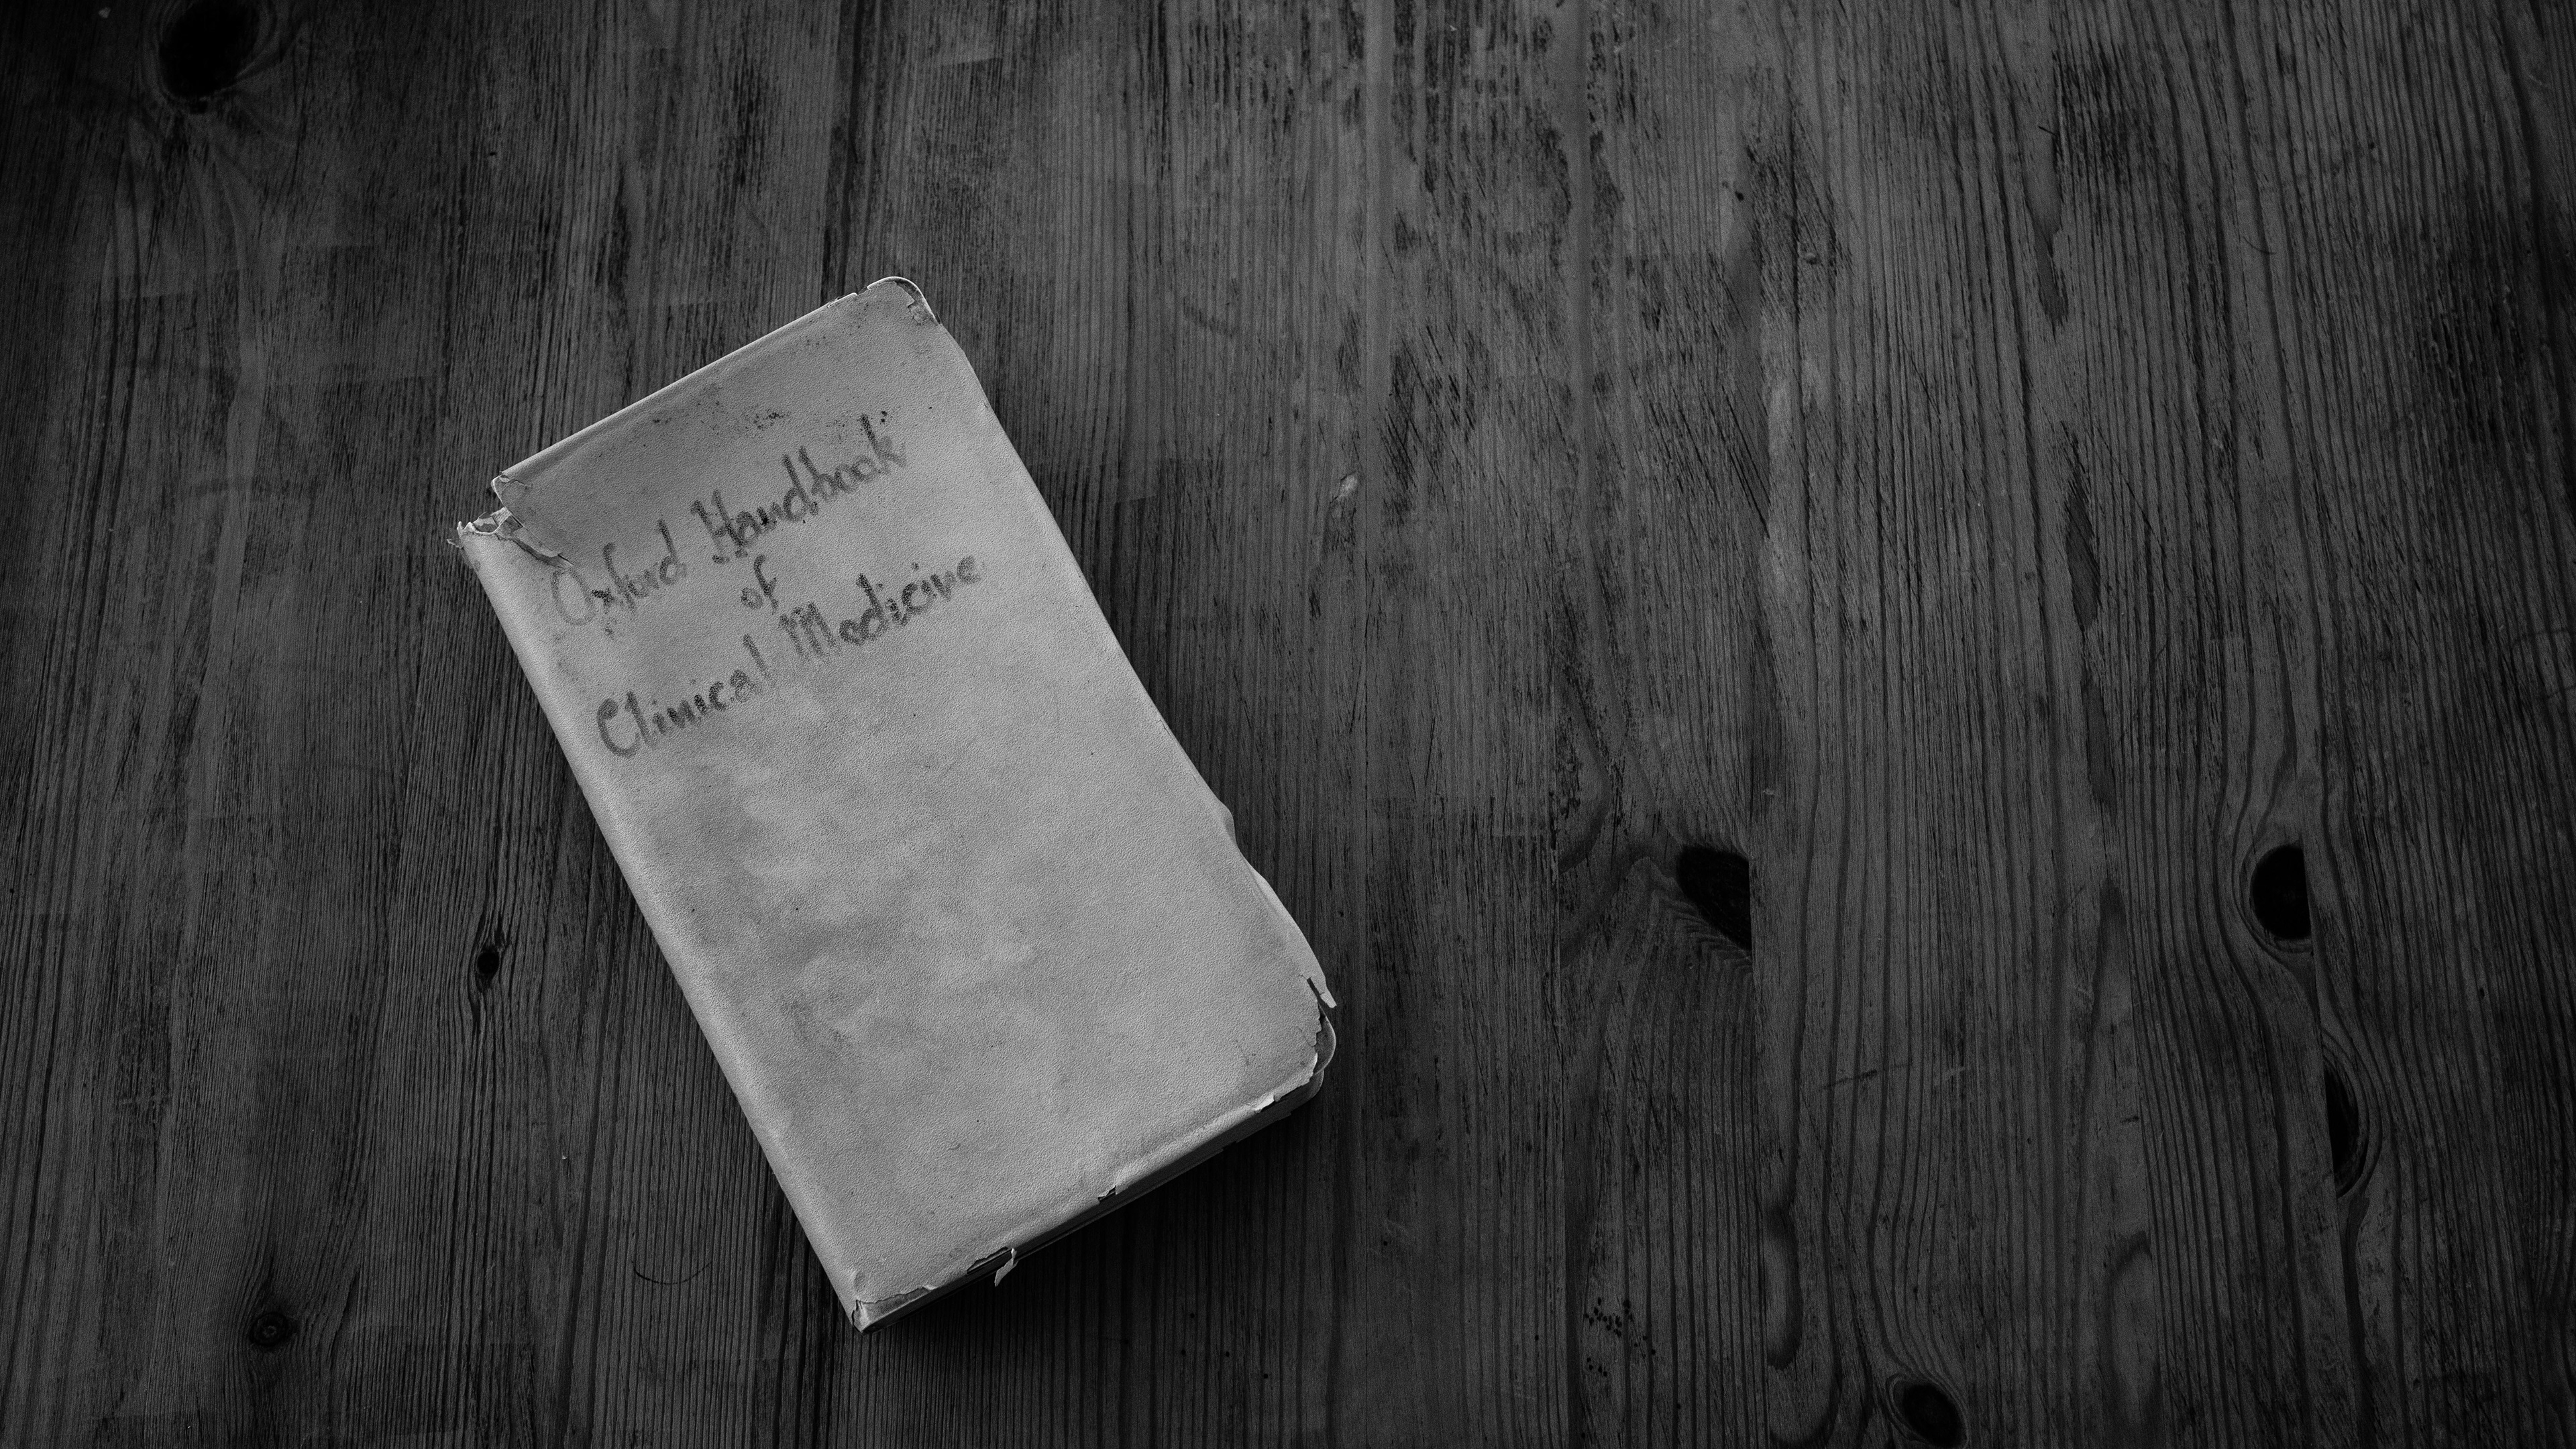 Oxford Handbook
of
Clinical Medicine